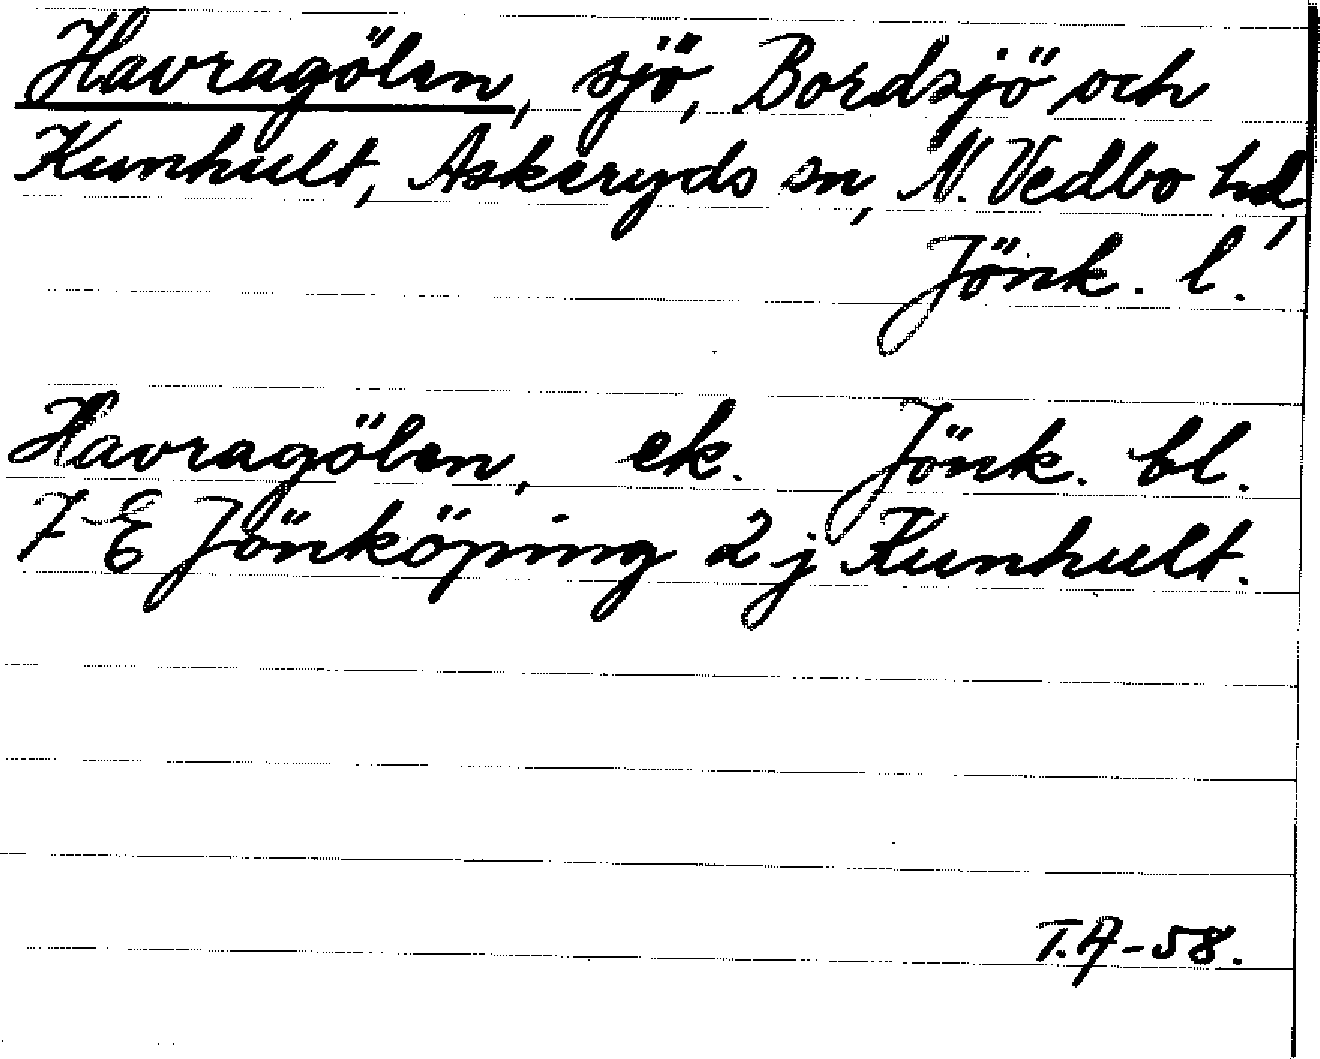 Havragölen, sjö, Bordsjö och
Kunhult, Askeryds sn, N. Vedbo hd,
Jönk. l.
Havragölen, ek. Jönk. bl.
7 E Jönköping 2 j Kunhult.
T.A-58.